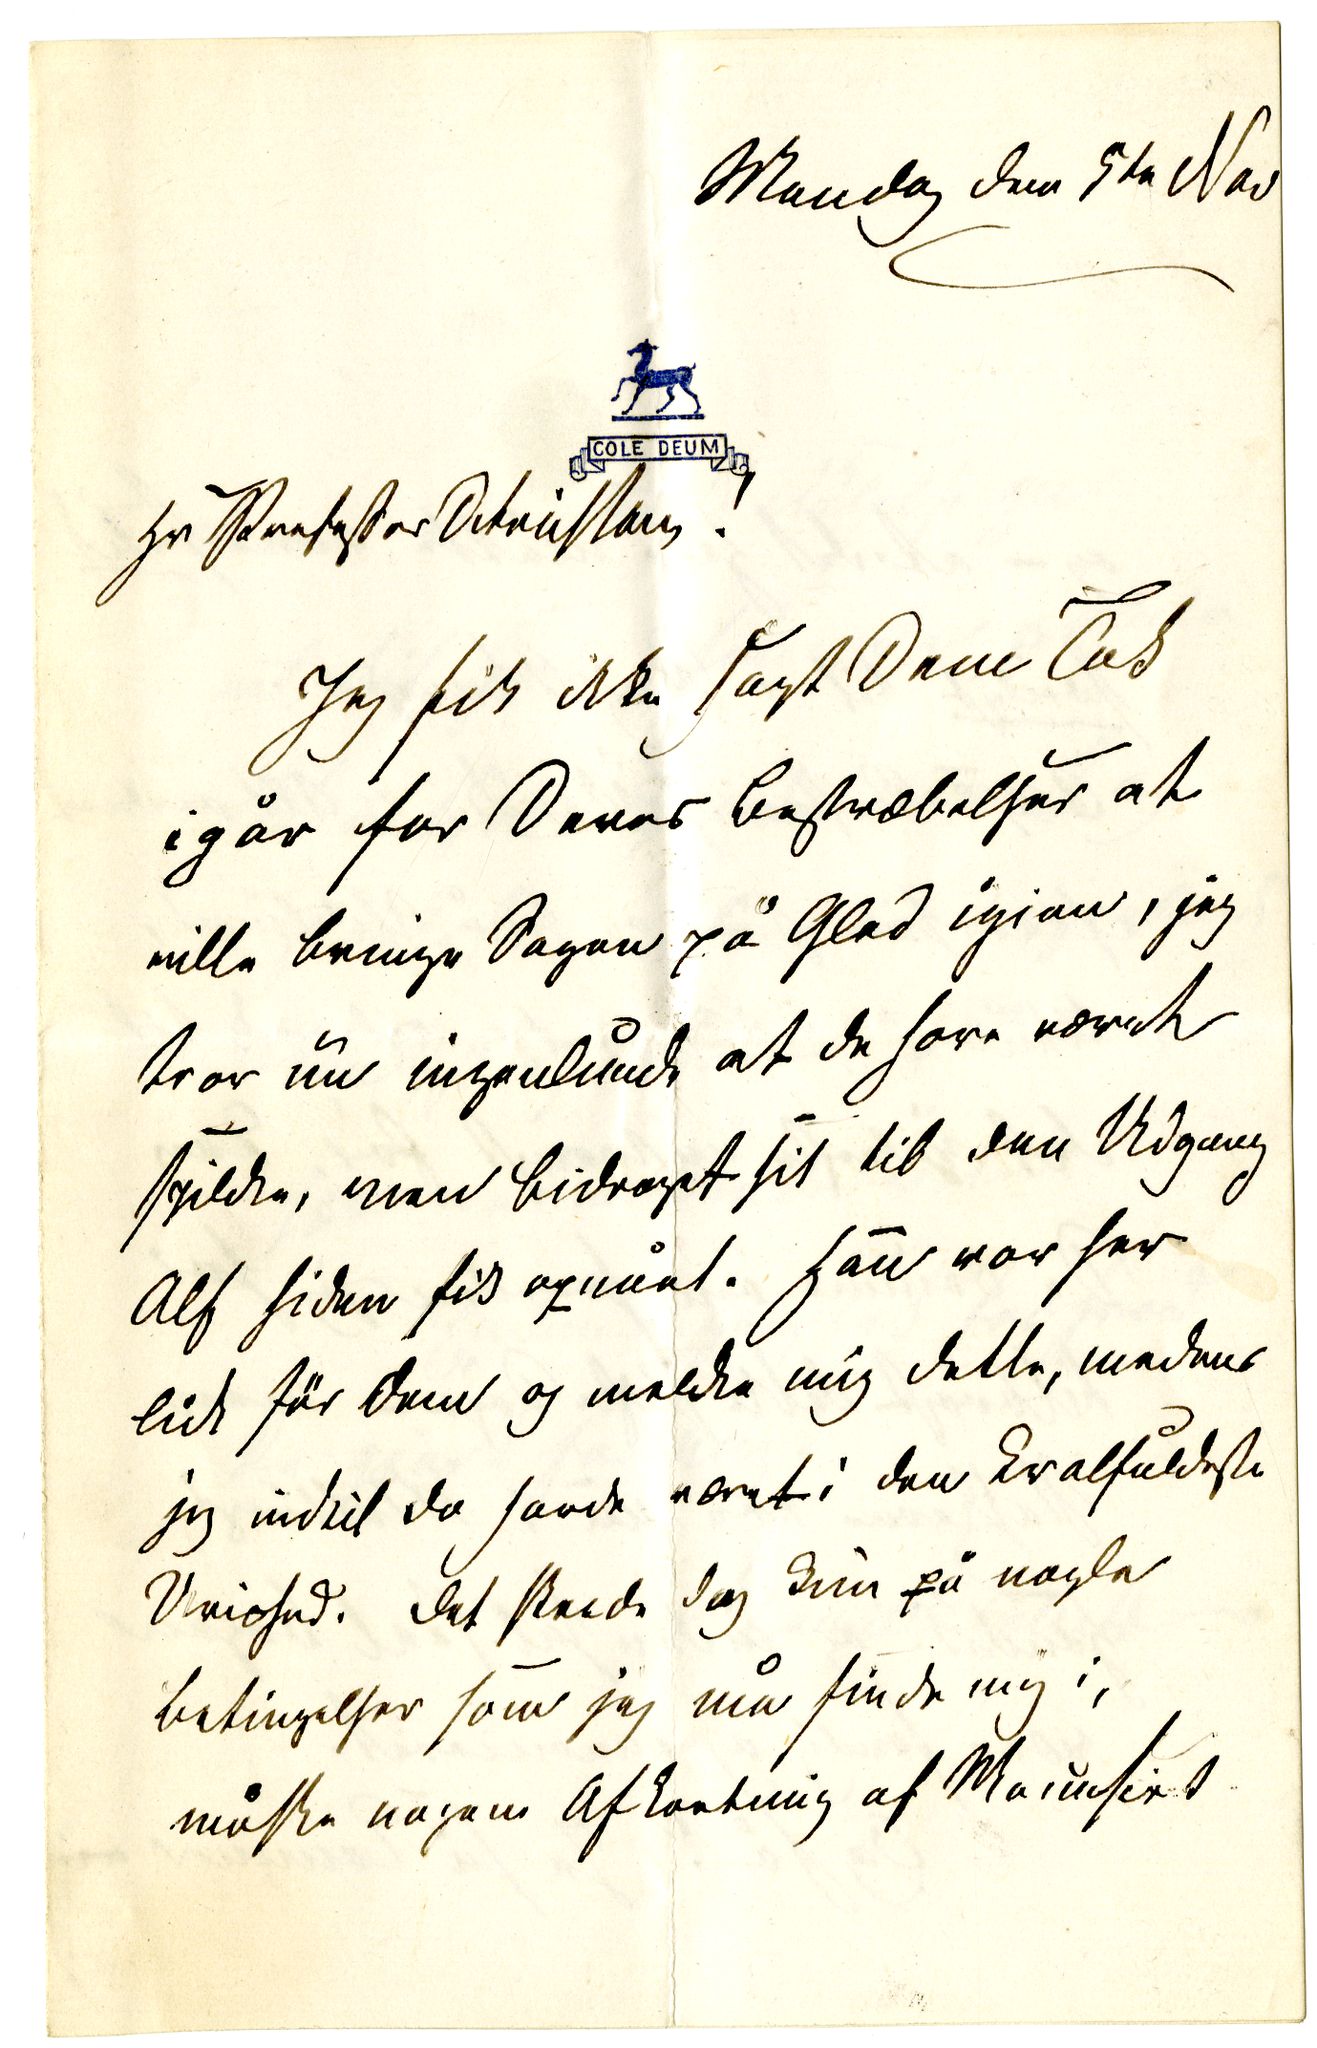 Mandag den 5te Nov
COLE DEUM
Hr Professor Dietrichson!
Jeg fik ikke sagt Dem Tak
igår for Deres Bestræbelser at
ville bringe Sagen på Gled igjen, jeg
tror nu ingenlunde at de have været
spildte, men bidraget sit til den Udgang
Alf siden fik opnået. Han var her
lidt før Dem og meldte mig dette, medens
jeg indtil da havde været i den kvalfuldeste
Uvished. Det skede dog kun på nogle
Betingelser som jeg må finde mig i,
måske nogen Afkortning af Manuskript